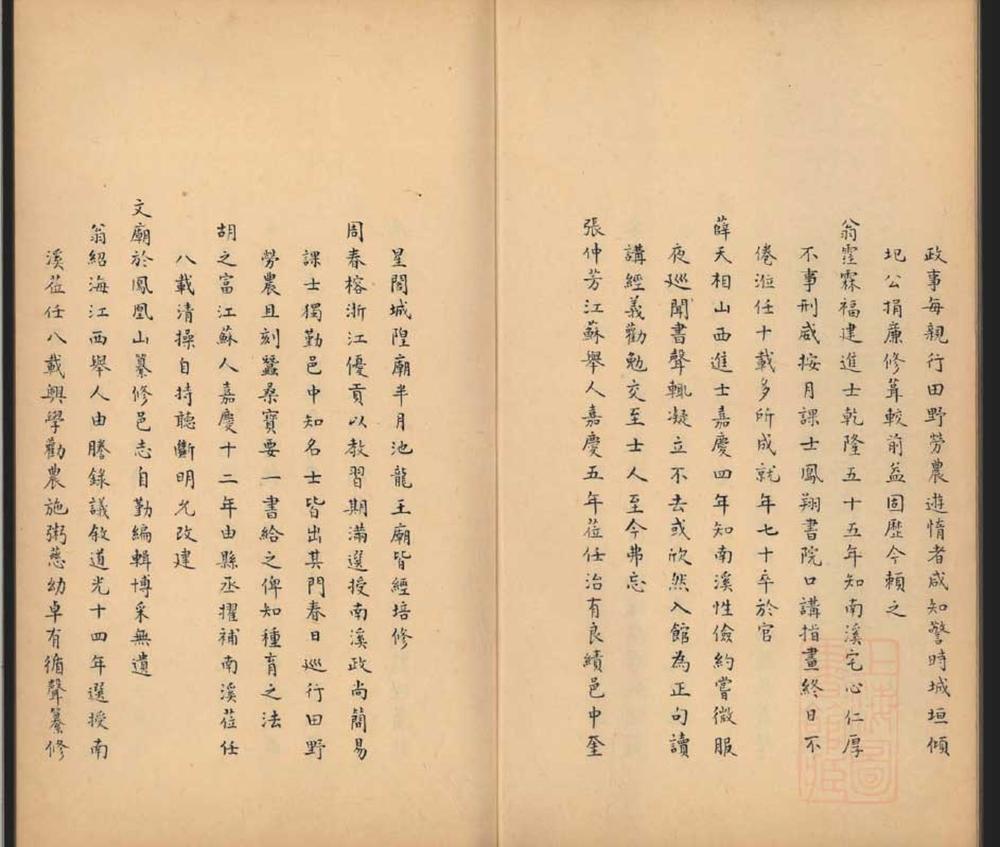 政事每親行田野勞農遊惰者咸知警時城垣傾
圮公捐廉修葺較前益固歷今賴之
翁霔霖福建進士乾隆五十五年知南溪宅心仁厚
不事刑威按月課士鳳翔書院口講指畫終日不
倦涖任十載多所成就年七十卒於官
薛天相山西進士嘉慶四年知南溪性儉約嘗微服
夜巡聞書聲輒凝立不去或欣然入館為正句讀
講經義勸勉交至士人至今弗忘
張仲芳江蘇舉人嘉慶五年蒞任治有良績邑中奎
星閣城隍廟半月池龍王廟皆經培修
周春榕浙江優貢以教習期滿選授南溪政尚簡易
課士獨勤邑中知名士皆出其門春日巡行田野
勞農且刻蠶桑寶要一書給之俾知種育之法
胡之富江蘇人嘉慶十二年由縣丞擢補南溪蒞任
八載清操自持聽斷明允改建
文廟於鳳凰山纂修邑志自勤編輯博采無遺
翁紹海江西舉人由謄錄議敘道光十四年選授南
溪蒞任八載興學勸農施粥慈幼卓有循聲纂修